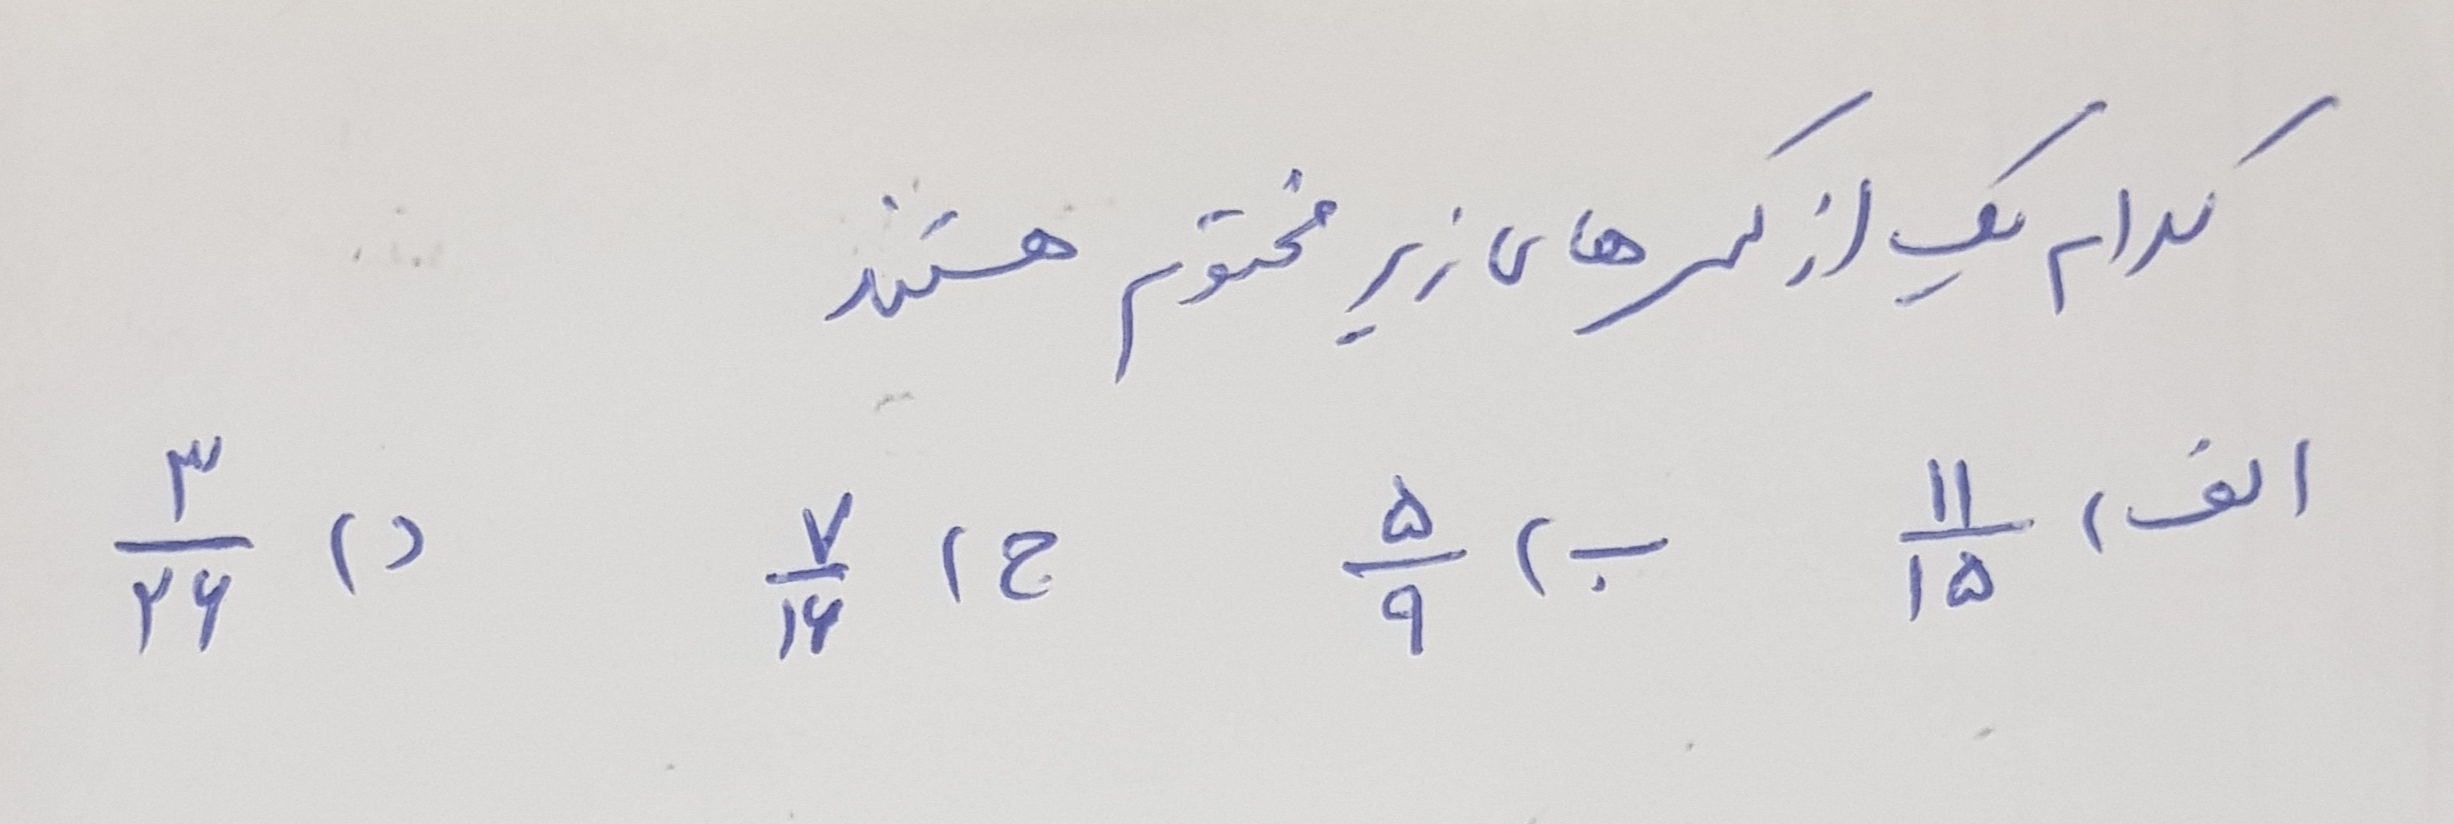 کدام یک از کسرهای زیر مختوم هستند
الف) ۱۱/۱۵ ب) ۵/۹ ج) ۷/۱۶ د) ۳/۲۶